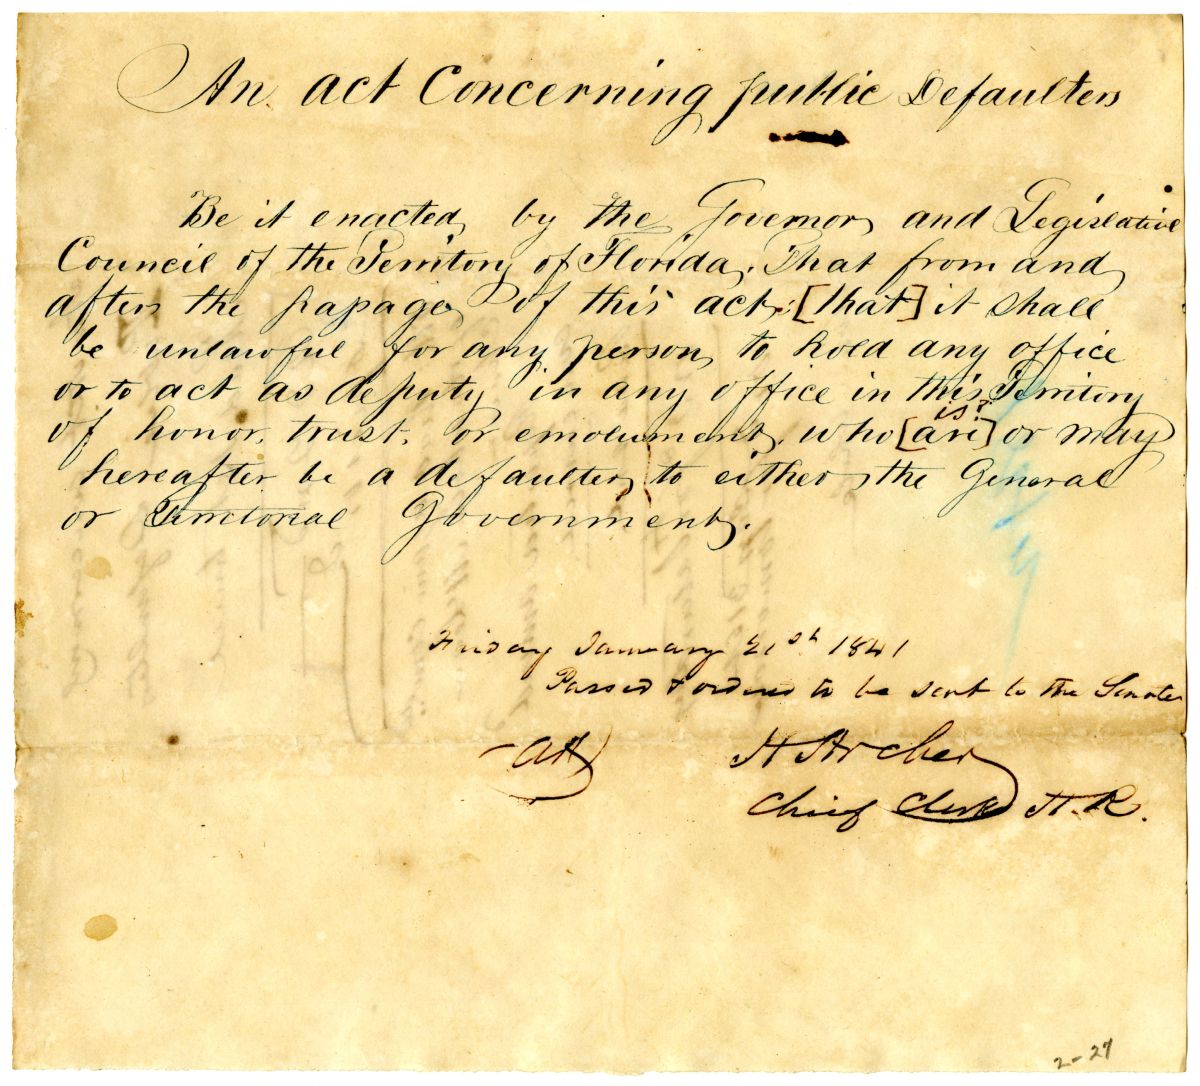 An act Concerning public Defaulters
Be it enacted by the Governor and Legislative
Council of the Territory of Florida. That from and
after the passage of this act: [that] it shall
be unlawful for any person to hold any office
or to act as deputy in any office in this Territory
is?
of honor, trust, or emolument, who [are] or may
hereafter be a defaulter to either the General
or Territorial Government.
Friday January 21st 1841
Passed & ordered to be sent to the Senate
H Archer
Chief Clerk H. R.
2-27